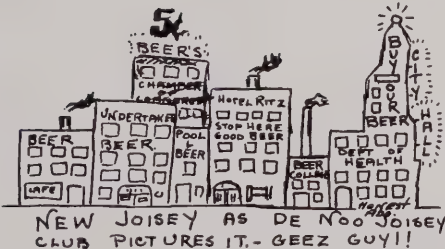 5¢
BEER'S
CHAMBER
COMMERCE
BEER
CAFE
UNDERTAKER
BEER
POOL
&
BEER
HOTEL RITZ
STOP HERE
GOOD BEER
BEER
COLLEGE
DEPT OF
HEALTH
BUY OUR
BEER
CITY
HALL
NEW JOISEY AS DE NOO JOISEY
CLUB PICTURES IT.- GEEZ GUY!!